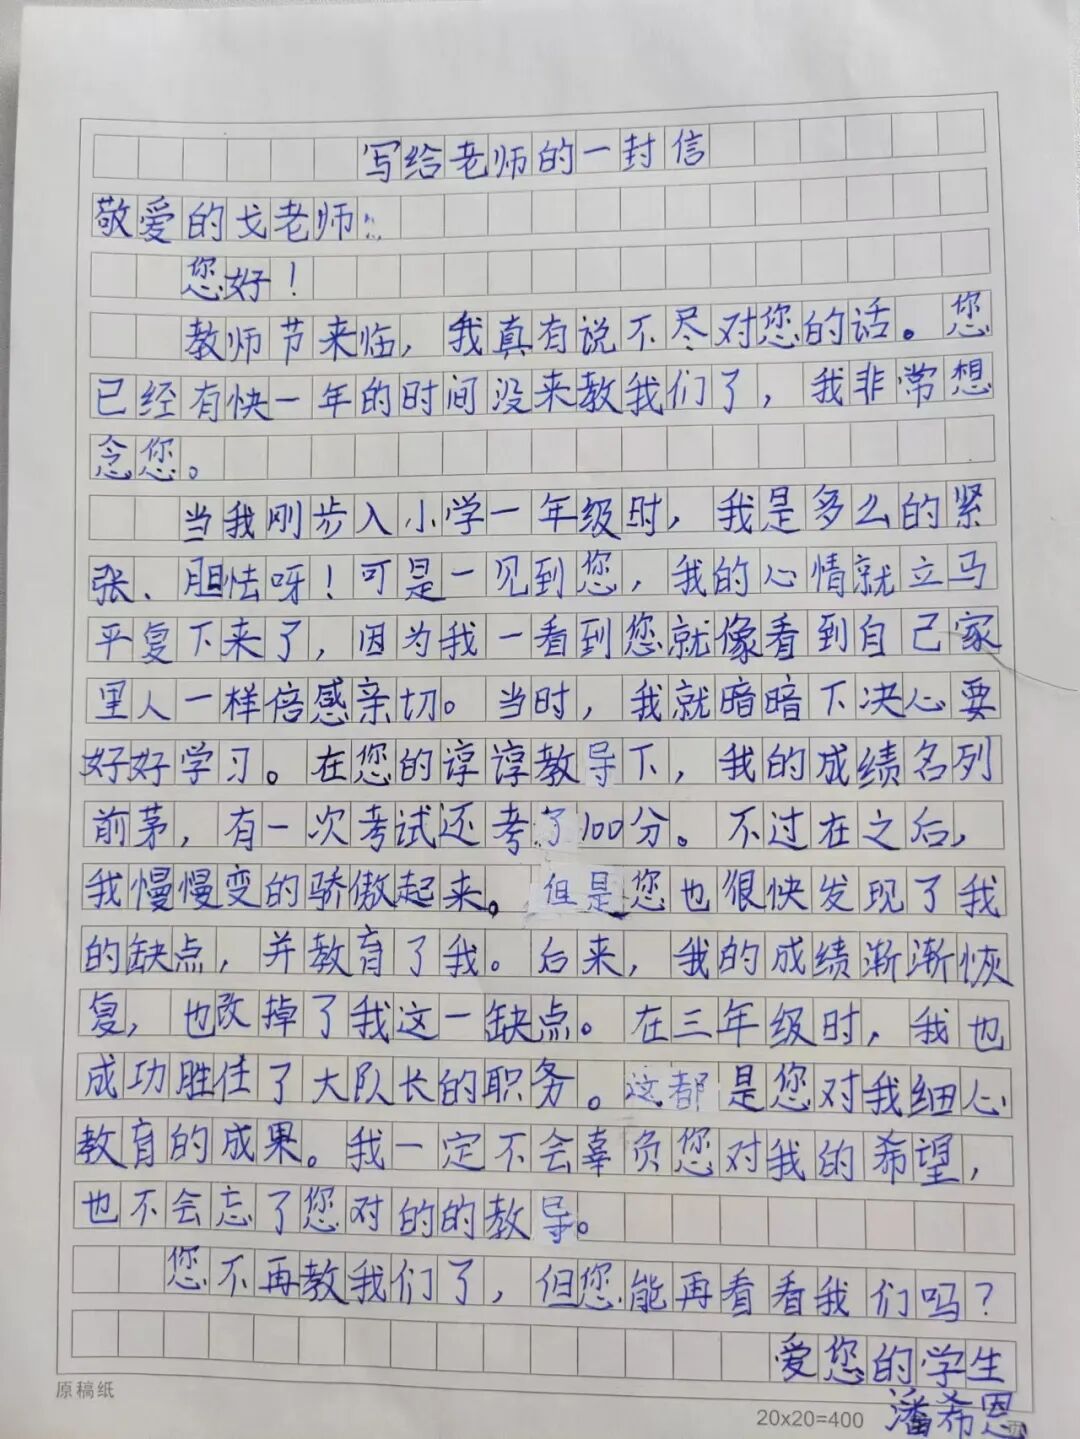 写给老师的一封信
敬爱的戈老师:
您好！
教师节来临，我真有说不尽对您的话。您
已经有快一年的时间没来教我们了，我非常想
念您。
当我刚步入小学一年级时，我是多么的紧
张、胆怯呀！可是一见到您，我的心情就立马
平复下来了，因为我一看到您就像看到自己家
里人一样倍感亲切。当时，我就暗暗下决心要
好好学习。在您的谆谆教导下，我的成绩名列
前茅，有一次考试还考了100分。不过在之后，
我慢慢变的骄傲起来。但是您也很快发现了我
的缺点，并教育了我。后来，我的成绩渐渐恢
复，也改掉了我这一缺点。在三年级时，我也
成功胜任了大队长的职务。这都是您对我细心
教育的成果。我一定不会辜负您对我的希望，
也不会忘了您对的的教导。
您不再教我们了，但您能再看看我们吗？
爱您的学生
潘希恩
原稿纸
20x20=400